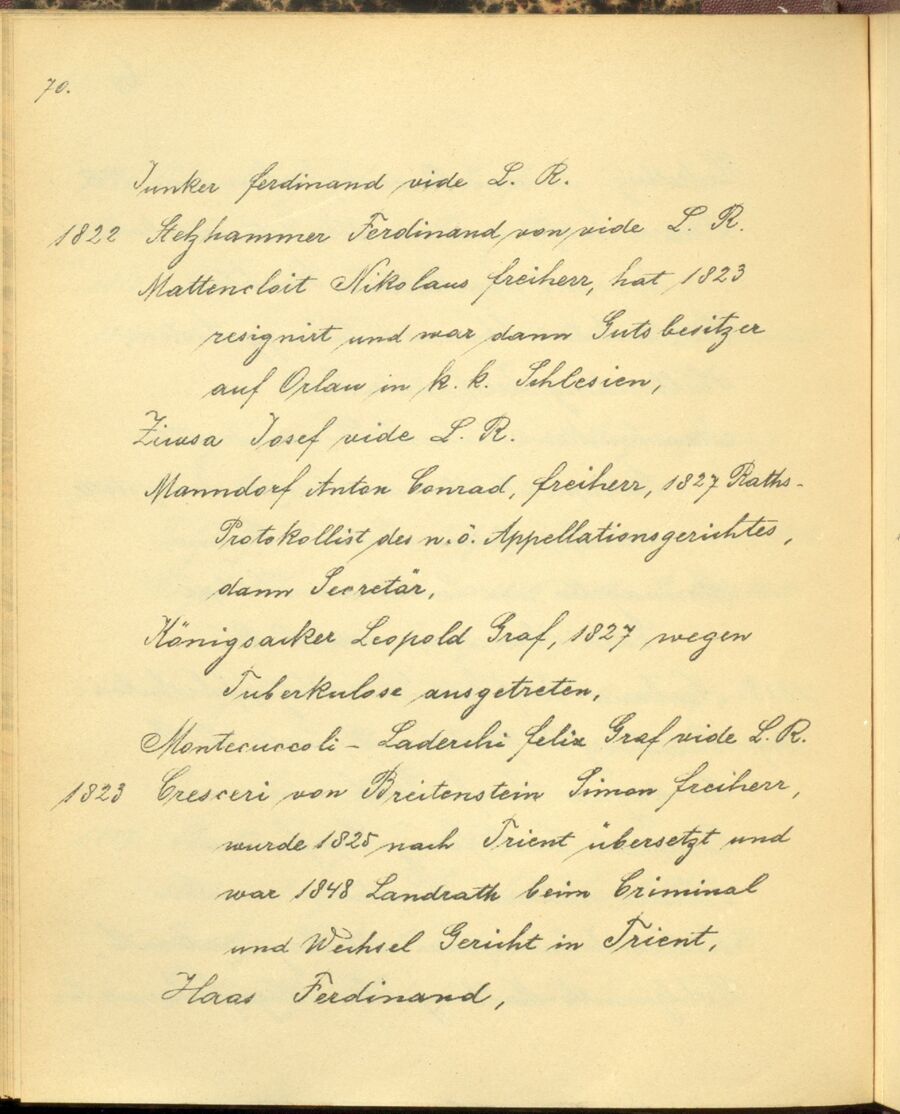 70.
Junker Ferdinand vide L. R.
1822 Stelzhammer Ferdinand von vide L. R.
Mattencloit Nikolaus freiherr, hat 1823
resignirt und war dann Gutsbesitzer
auf Orlau in k. k. Schlesien,
Ziwsa Josef vide L. R.
Manndorf Anton Conrad, freiherr, 1827 Raths-
Protokollist des n. ö. Appellationsgerichtes,
dann Secretär,
Königsacker Leopold Graf, 1827 wegen
Tuberkulose ausgetreten,
Montecuccoli - Laderchi Felix Graf vide L. R.
1823 Cresceri von Breitenstein Simon freiherr,
wurde 1825 nach Trient übersetzt und
war 1848 Landrath beim Criminal
und Wechsel Gericht in Trient,
Haas Ferdinand,